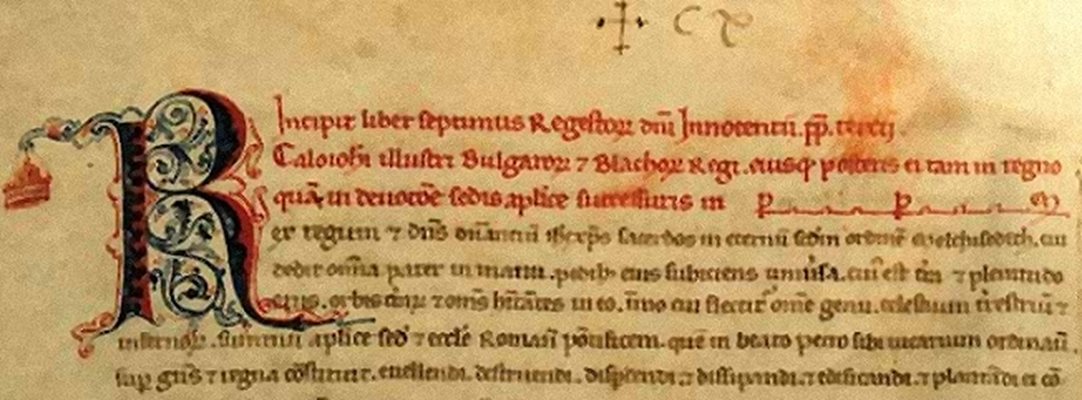 ✢ C
Incipit liber septimus Regestoꝝ dñi Innocentii. pp̄. tercij.
Caloioh̄i illustri Bulgaroꝝ ⁊ Blachoꝝ Regi. eiusqꝫ posteris ei tam in regno
quā in deuotōe sedis aplice successuris in P P M
Rex regum ⁊ dn̄s dn̄antiū ih̄c xp̄s sacerdos in eternū scd̄m ordinē melchisedech. cui
dedit oīa pater in manu. pedibꝫ eius subiciens uniuersa. cui est t̄ra ⁊ plenitudo
eius. orbis ⁊ om̄s hītātes in eo. īmo cui flectit᷑ om̄e genu. celestium t̄restriū ⁊
infernoꝝ. summū aplice sed ⁊ eccle Romañ pōtificem. quē in beato petro sibi uicarium ordinauit.
sup̄ gn̄tes ⁊ regna cōstituit. euellendi. destruendi. disperdendi. ⁊ dissipandi. ⁊ edificandi. ⁊ plantādi ei